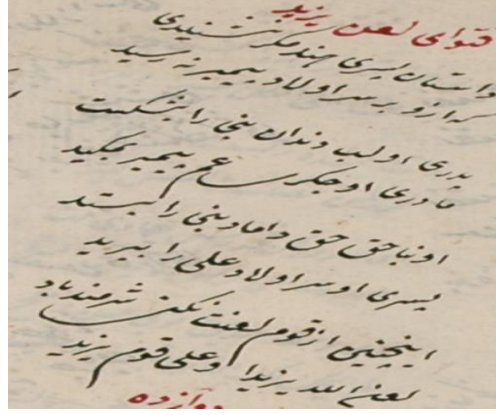 فتوای لعن یزید
داستان پسری هند مکر نشنیدی
که ازو بر سر اولاد پیمبر چه رسید
پدری او لب و دندان نبی را بشکست
مادری او جکر عم پیمبر بمکید
او بناحق حق داماد نبی را بستد
پسری او سر اولاد علی را ببرید
اینچنین از قوم لعنت نکنی شرمت باد
لعن الله یزیدا و علی قوم یزید
دوازده